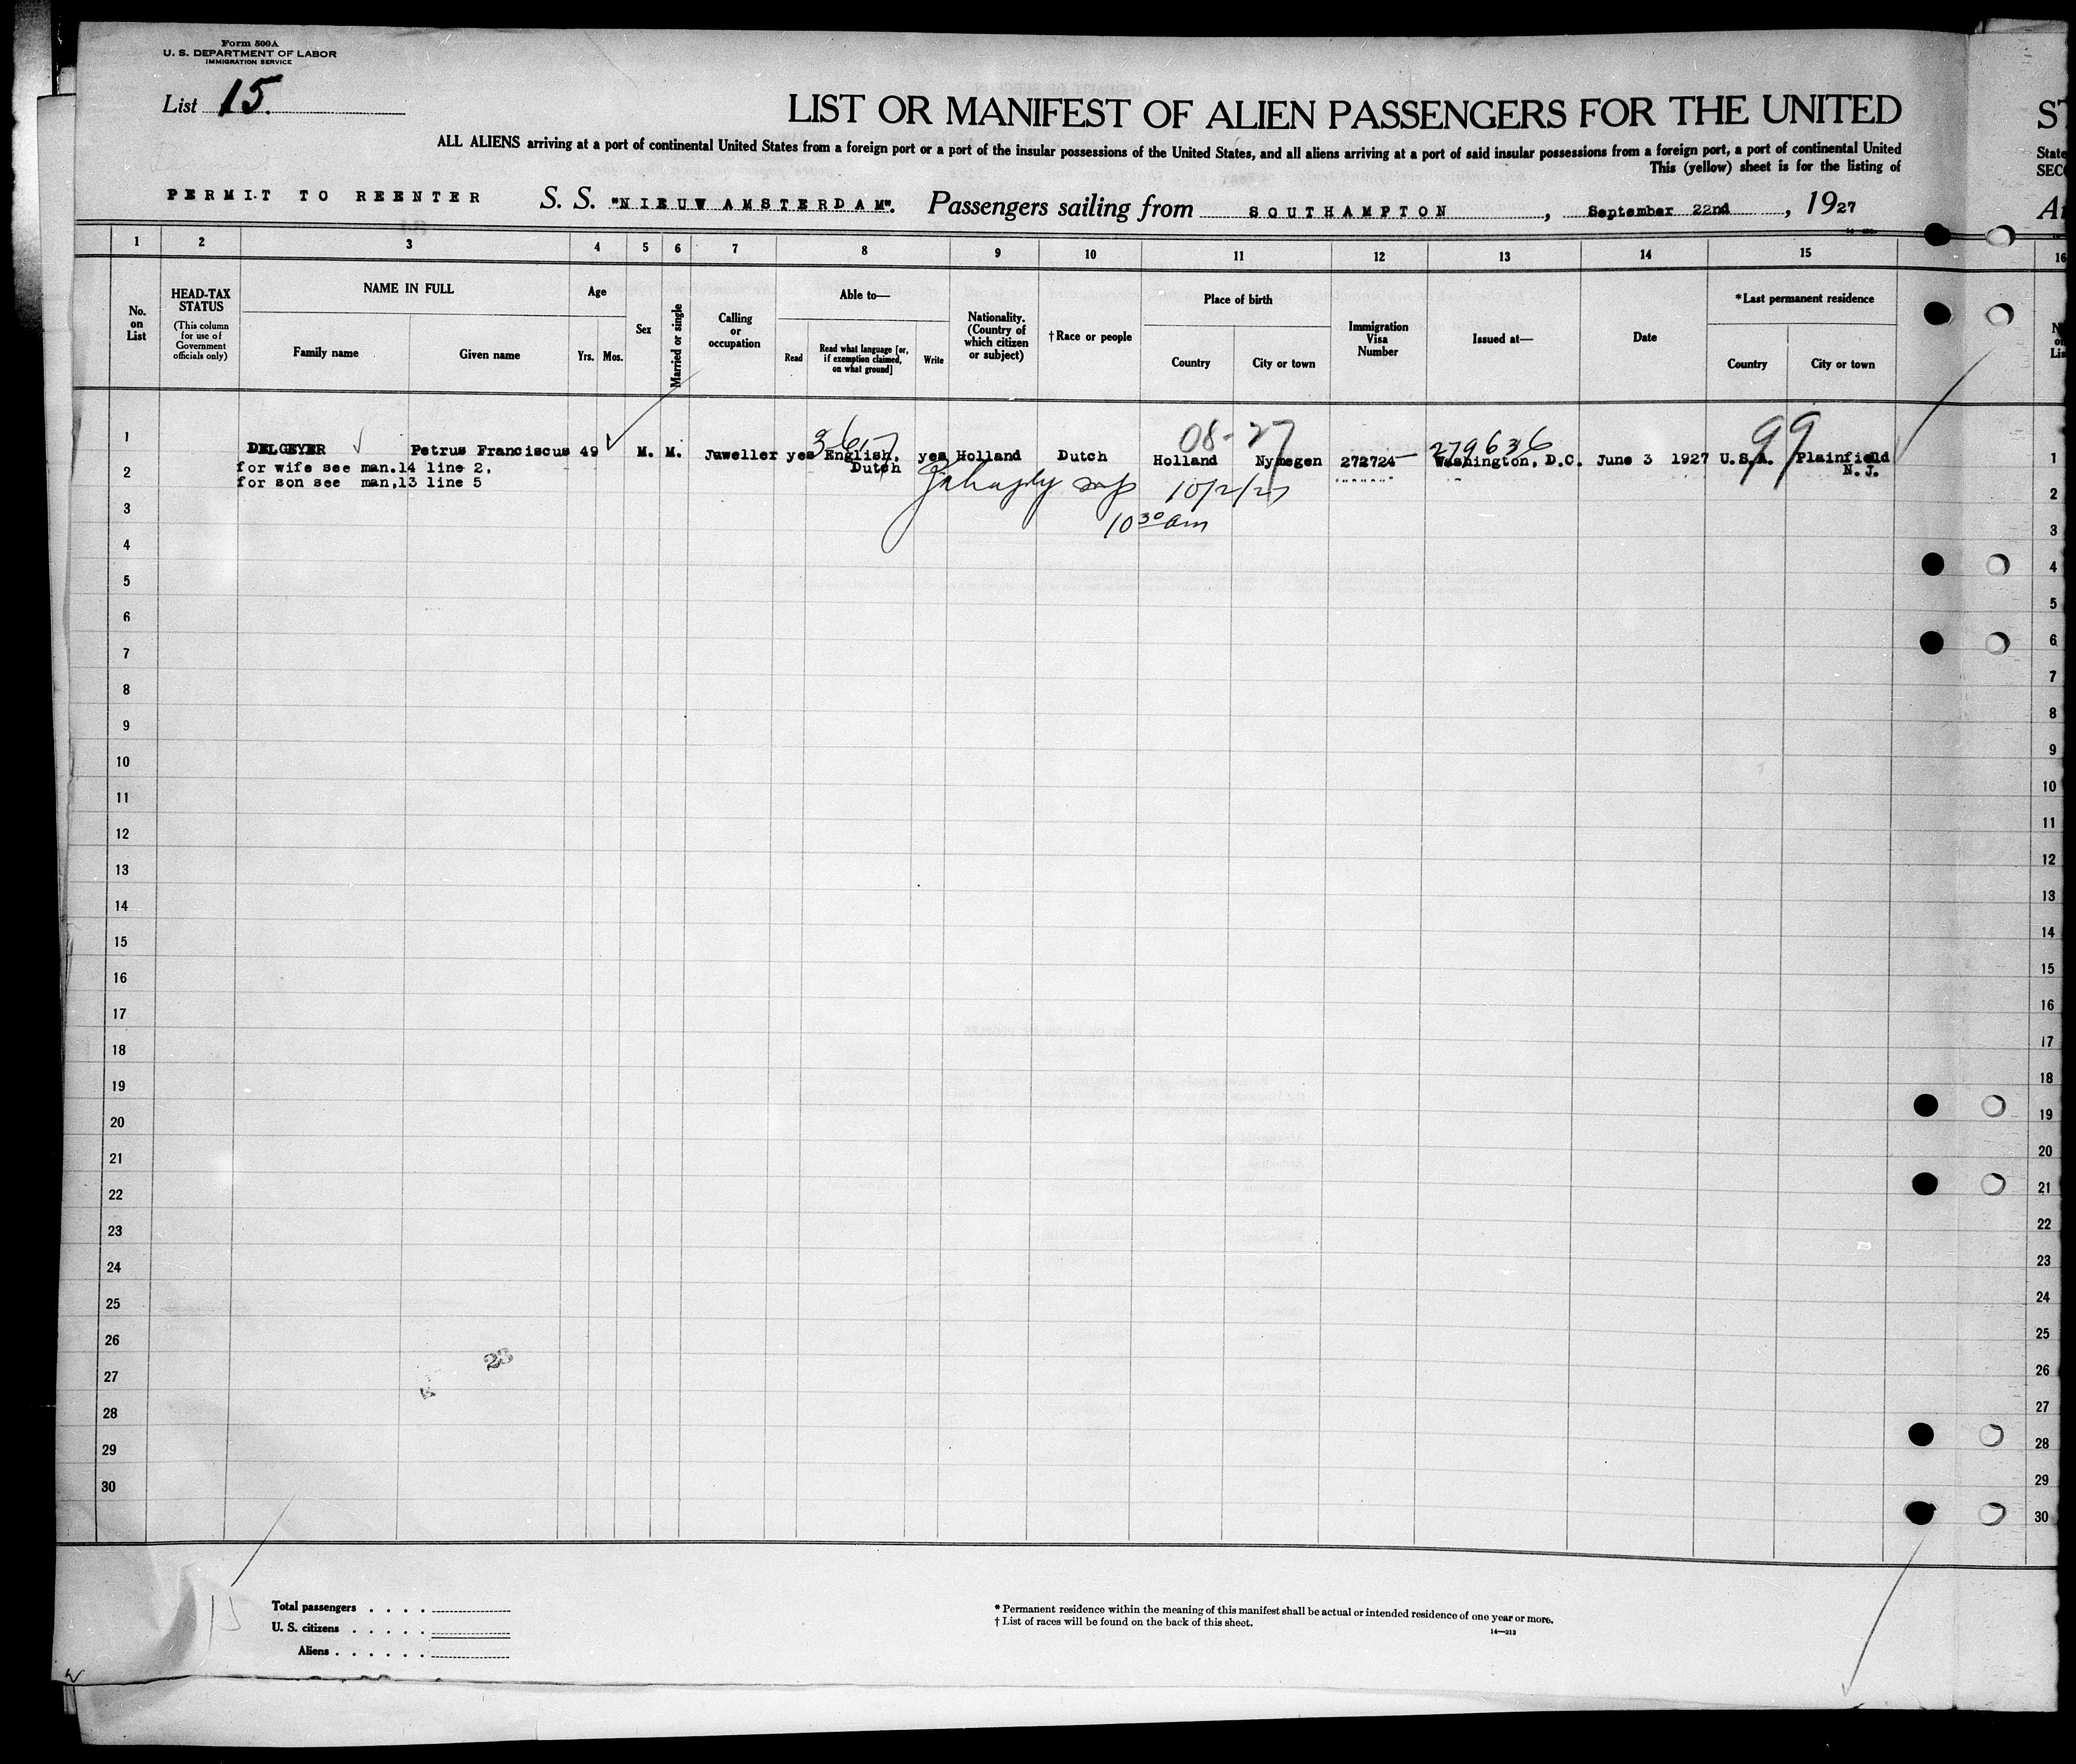 Form 500A
U. S. DEPARTMENT OF LABOR
IMMIGRATION SERVICE
List 15.
LIST OR MANIFEST OF ALIEN PASSENGERS FOR THE UNITED
ST
ALL ALIENS arriving at a port of continental United States from a foreign port or a port of the insular possessions of the United States, and all aliens arriving at a port of said insular possessions from a foreign port, a port of continental United
State
This (yellow) sheet is for the listing of
SECO
PERMIT TO REENTER S. S. "NIEUW AMSTERDAM". Passengers sailing from SOUTHAMPTON, September 22nd, 1927
1 2 3 4 5 6 7 8 9 10 11 12 13 14 15 16
No. on List
HEAD-TAX STATUS
(This column for use of Government officials only)
NAME IN FULL
Family name Given name
Age
Yrs. Mos.
Sex
Married or single
Calling or occupation
Able to—
Read
Read what language [or, if exemption claimed, on what ground]
Write
Nationality. (Country of which citizen or subject)
†Race or people
Place of birth
Country City or town
Immigration Visa Number
Issued at—
Date
*Last permanent residence
Country City or town
3617 08-27 279636 99
1 DELGEYER Petrus Franciscus 49 M. M. Juweller yes English, yes Holland Dutch Holland Nymegen 272724 Washington, D.C. June 3 1927 U.S.A. Plainfield 1
Dutch N. J.
for wife see man.14 line 2,
2 for son see man,13 line 5 2
10/2/27
3 10 30 am 3
4 4
5 5
6 6
7 7
8 8
9 9
10 10
11 11
12 12
13 13
14 14
15 15
16 16
17 17
18 18
19 19
20 20
21 21
22 22
23 23
24 24
25 25
26 26
23
27 27
28 28
29 29
30 30
15
Total passengers . . . .
U. S. citizens . . . . .
Aliens . . . . . .
* Permanent residence within the meaning of this manifest shall be actual or intended residence of one year or more.
† List of races will be found on the back of this sheet.
14—213